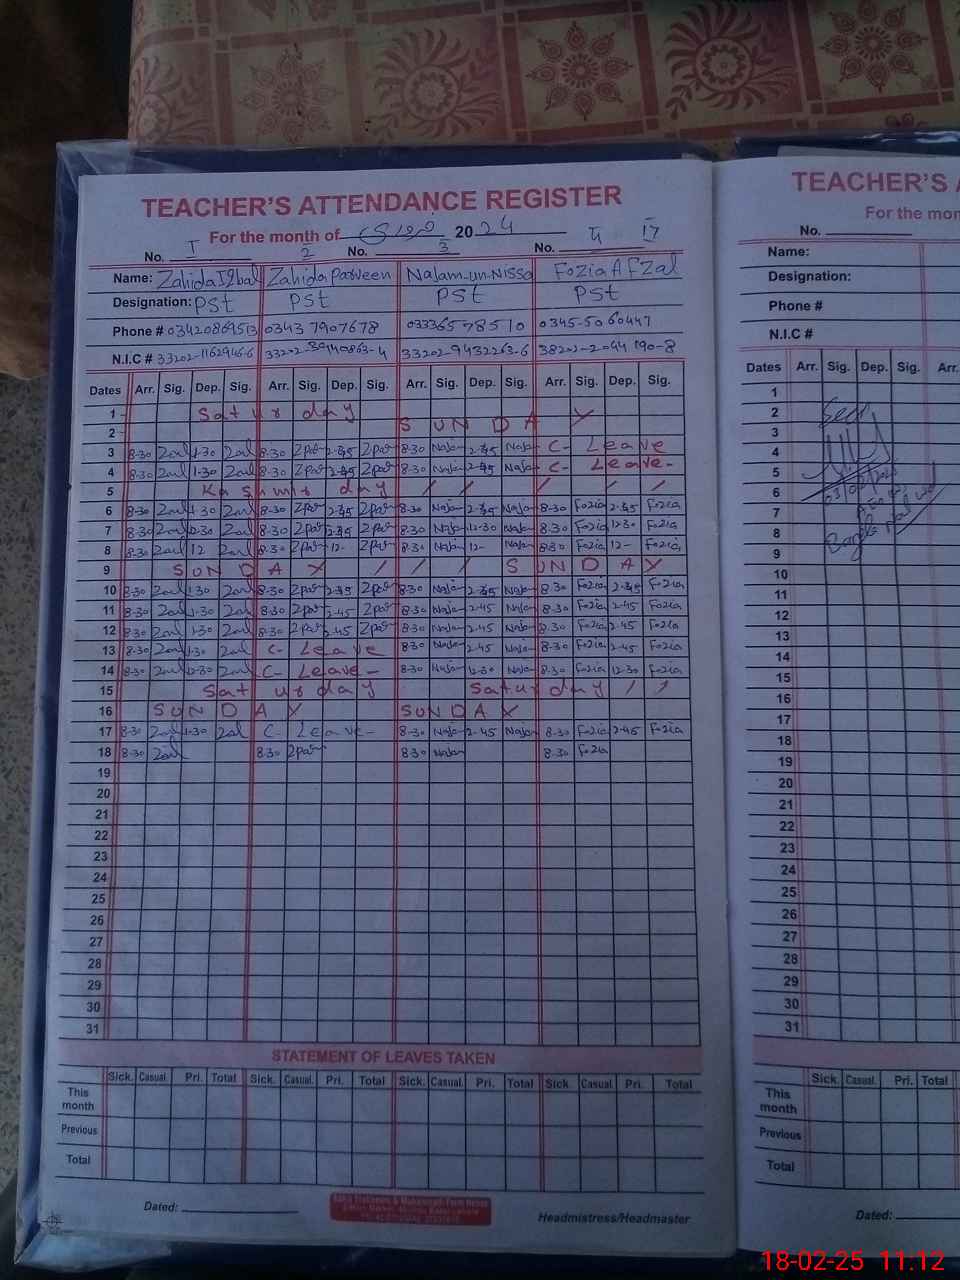 TEACHER'S ATTENDANCE REGISTER
For the month of فروری 2024
No. 1 2 No. 3 No. 4 17
Name: Zahida Iqbal Zahida Parveen Najam-un-Nissa Fozia Afzal
Designation: PSt PSt PSt PSt
Phone # 0343 7907678 0345-5060447
N.I.C # 33202-9432263-6
Dates Arr. Sig. Dep. Sig. Arr. Sig. Dep. Sig. Arr. Sig. Dep. Sig. Arr. Sig. Dep. Sig.
1 Saturday
2 SUNDAY
3 8-30 Zail 1-30 Zail 8-30 Zpar 2-45 Zpar 8-30 Najam 2-45 Najam C- Leave
4 8-30 Zail 1-30 Zail 8-30 Zpar 2-45 Zpar 8-30 Najam 2-45 Najam C- Leave-
5 Kashmir day / / / / /
6 8-30 Zail 1-30 Zail 8-30 Zpar 2-45 Zpar 8-30 Najam 2-45 Najam 8-30 Fozia 2-45 Fozia
7 8-30 Zail 12-30 Zail 8-30 Zpar Zpar 8-30 Najam 12-30 Najam 8-30 Fozia 12-30 Fozia
8 8-30 Zail 12 Zail 8-30 Zpar 12- Zpar 8-30 Najam 12- Najam 8-30 Fozia 12- Fozia
9 SUNDAY / / / SUNDAY
10 8-30 Zail 1-30 Zail 8-30 Zpar 2-45 Zpar 8-30 Najam 2-45 Najam 8-30 Fozia 2-45 Fozia
11 8-30 Zail 1-30 Zail 8-30 Zpar 2-45 Zpar 8-30 Najam 2-45 Najam 8-30 Fozia 2-45 Fozia
12 8-30 Zail 1-30 Zail 8-30 Zpar 2-45 Zpar 8-30 Najam 2-45 Najam 8-30 Fozia 2-45 Fozia
13 8-30 Zail 1-30 Zail C- Leave 8-30 Najam 2-45 Najam 8-30 Fozia 2-45 Fozia
14 8-30 Zail 12-30 Zail C- Leave- 8-30 Najam 12-30 Najam 8-30 Fozia 12-30 Fozia
15 Saturday Saturday / /
16 SUNDAY SUNDAY
17 8-30 Zail 1-30 Zail C- Leave- 8-30 Najam 2-45 Najam 8-30 Fozia 2-45 Fozia
18 8-30 Zail 8-30 Zpar 8-30 Najam 8-30 Fozia
19
20
21
22
23
24
25
26
27
28
29
30
31
STATEMENT OF LEAVES TAKEN
Sick. Casual. Pri. Total Sick. Casual. Pri. Total Sick. Casual. Pri. Total Sick. Casual. Pri. Total
This month
Previous
Total
Dated:
Headmistress/Headmaster
TEACHER'S A
For the mon
No.
Name:
Designation:
Phone #
N.I.C #
Dates Arr. Sig. Dep. Sig. Arr.
1
2 Seen
3
4
5
6 03/02/2025
7
8
9
10
11
12
13
14
15
16
17
18
19
20
21
22
23
24
25
26
27
28
29
30
31
Sick. Casual. Pri. Total
This month
Previous
Total
Dated:
18-02-25 11:12